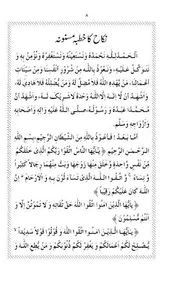 ۸
نکاح کا خطبہ مسنونہ
اَلْحَمْدُ لِلّٰہِ نَحْمَدُہٗ وَنَسْتَعِیْنُہٗ وَنَسْتَغْفِرُہٗ وَنُؤْمِنُ بِہٖ وَ
نَتَوَکَّلُ عَلَیْہِ، وَنَعُوْذُ بِاللّٰہِ مِنْ شُرُوْرِ اَنْفُسِنَا وَمِنْ سَیِّئَاتِ
اَعْمَالِنَا، مَنْ یَّھْدِہِ اللّٰہُ فَلَا مُضِلَّ لَہٗ وَمَنْ یُّضْلِلْہُ فَلَا ھَادِیَ لَہٗ،
وَاَشْھَدُ اَنْ لَّا اِلٰہَ اِلَّا اللّٰہُ وَحْدَہٗ لَا شَرِیْکَ لَہٗ، وَاَشْھَدُ اَنَّ
مُحَمَّدًا عَبْدُہٗ وَرَسُوْلُہٗ، صَلَّی اللّٰہُ عَلَیْہِ وَاٰلِہٖ وَاَصْحَابِہٖ
وَاَزْوَاجِہٖ وَسَلَّمَ.
اَمَّا بَعْدُ! فَاَعُوْذُ بِاللّٰہِ مِنَ الشَّیْطَانِ الرَّجِیْمِ بِسْمِ اللّٰہِ
الرَّحْمٰنِ الرَّحِیْمِ ﴿یٰٓاَیُّھَا النَّاسُ اتَّقُوْا رَبَّکُمُ الَّذِیْ خَلَقَکُمْ
مِّنْ نَّفْسٍ وَّاحِدَۃٍ وَّخَلَقَ مِنْھَا زَوْجَھَا وَبَثَّ مِنْھُمَا رِجَالًا کَثِیْرًا
وَّ نِسَآءً وَ اتَّقُوا اللّٰہَ الَّذِیْ تَسَآءَ لُوْنَ بِہٖ وَ الْاَرْحَامَ اِنَّ
اللّٰہَ کَانَ عَلَیْکُمْ رَقِیْبًا﴾
﴿یٰٓاَیُّھَا الَّذِیْنَ اٰمَنُوا اتَّقُوا اللّٰہَ حَقَّ تُقَاتِہٖ وَ لَا تَمُوْتُنَّ اِلَّا وَ
اَنْتُمْ مُّسْلِمُوْنَ﴾
﴿یٰٓاَیُّھَا الَّذِیْنَ اٰمَنُوا اتَّقُوا اللّٰہَ وَ قُوْلُوْا قَوْلًا سَدِیْدًا
یُّصْلِحْ لَکُمْ اَعْمَالَکُمْ وَ یَغْفِرْ لَکُمْ ذُنُوْبَکُمْ وَ مَنْ یُّطِعِ اللّٰہَ وَ